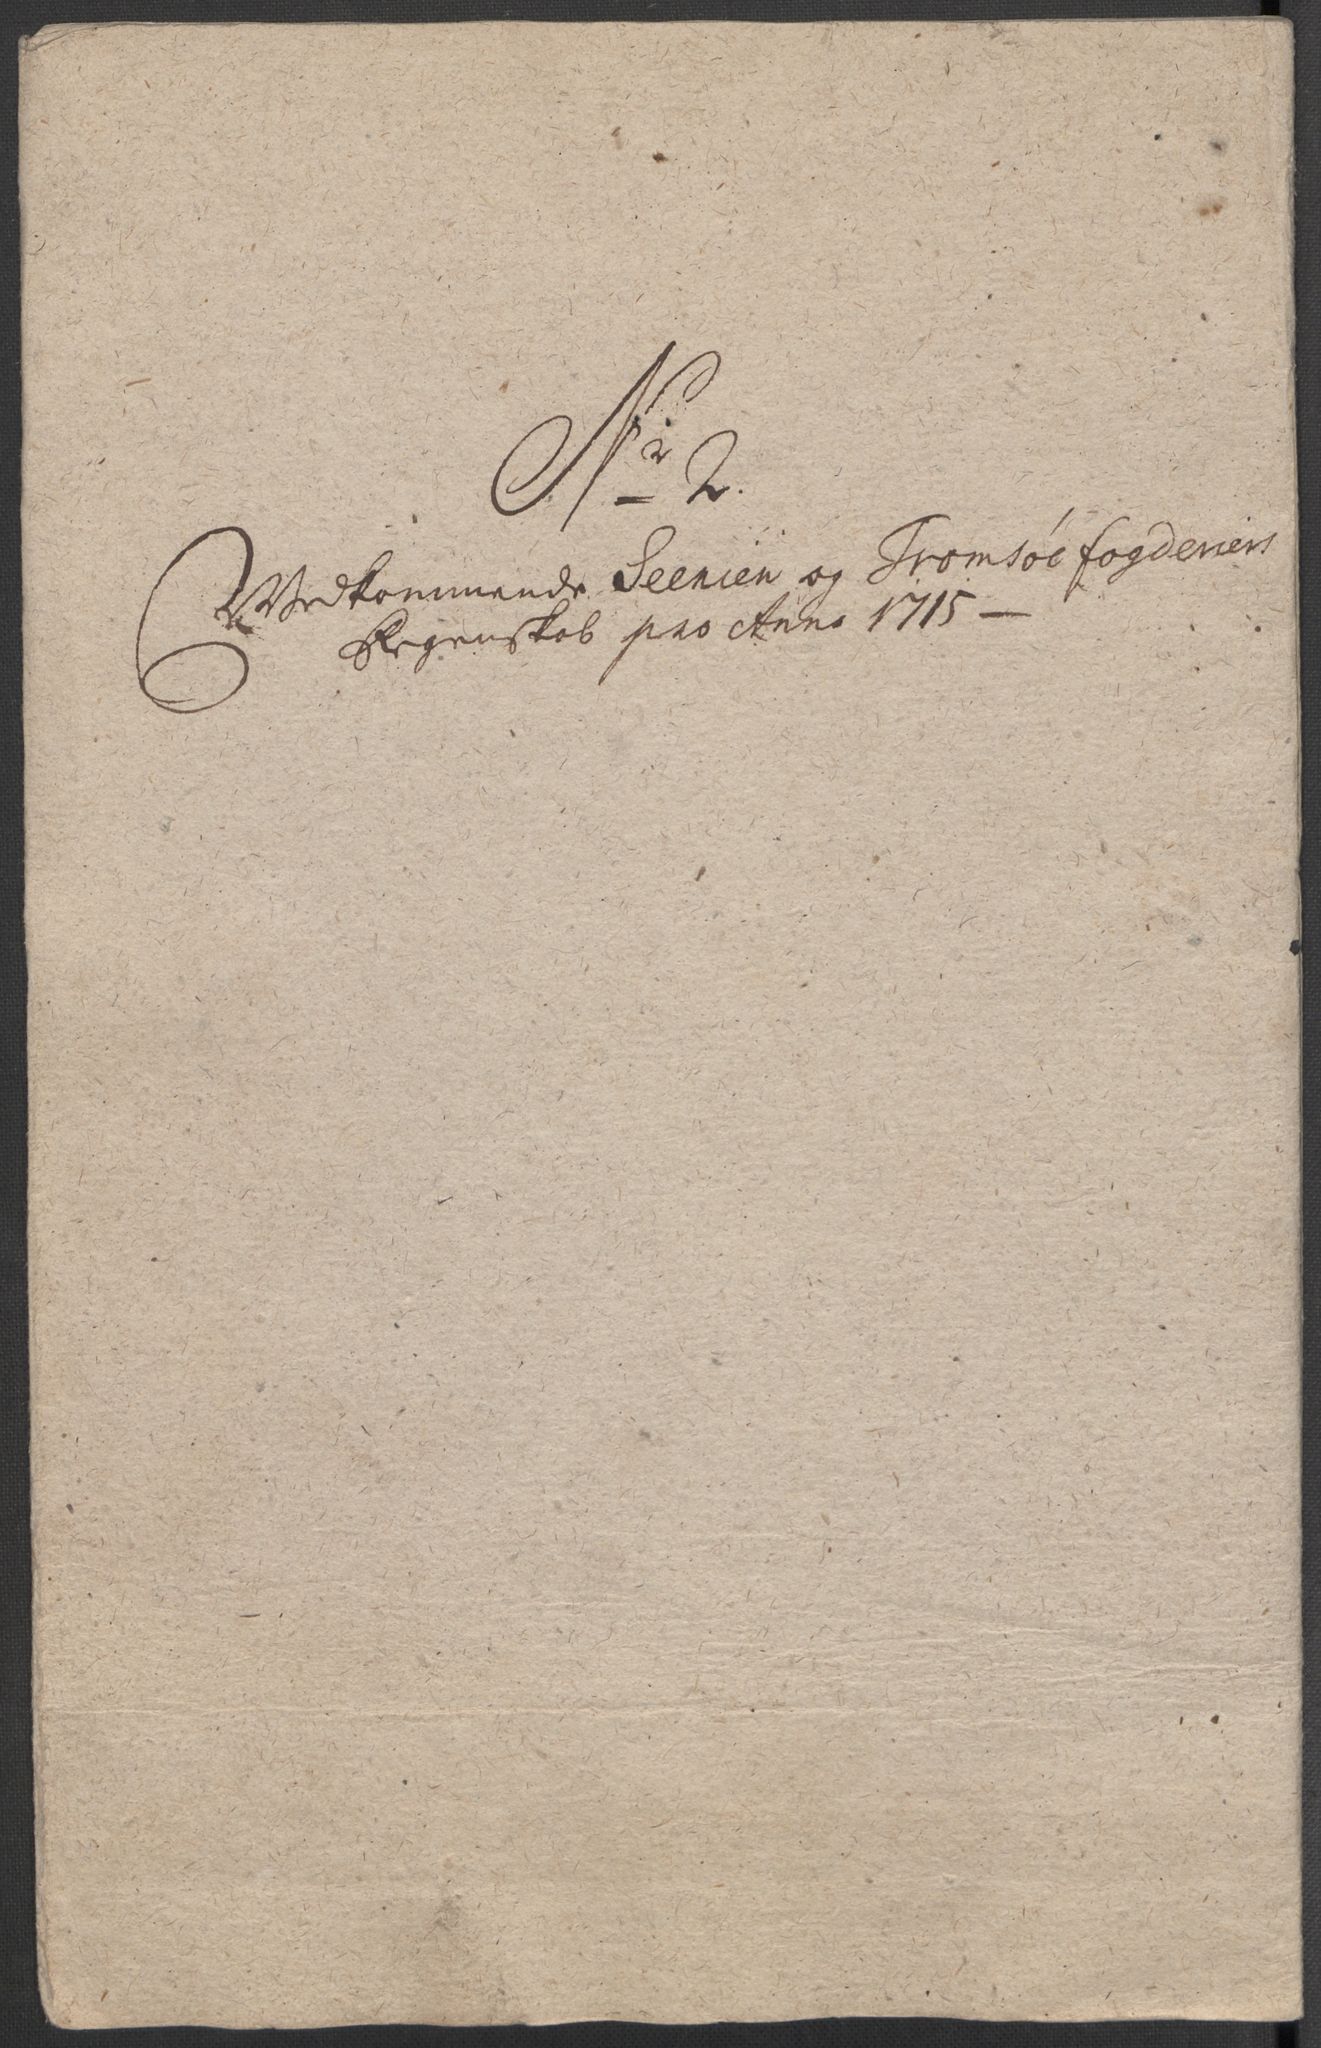 No 2.
Vedkommende Seenien og Tromsøe fogderiers
Regenskab pro Anno 1715 —